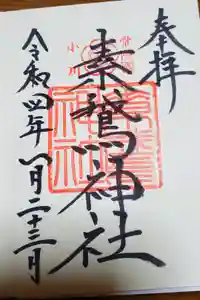 奉拝
素鵞神社
令和四年一月二十三日